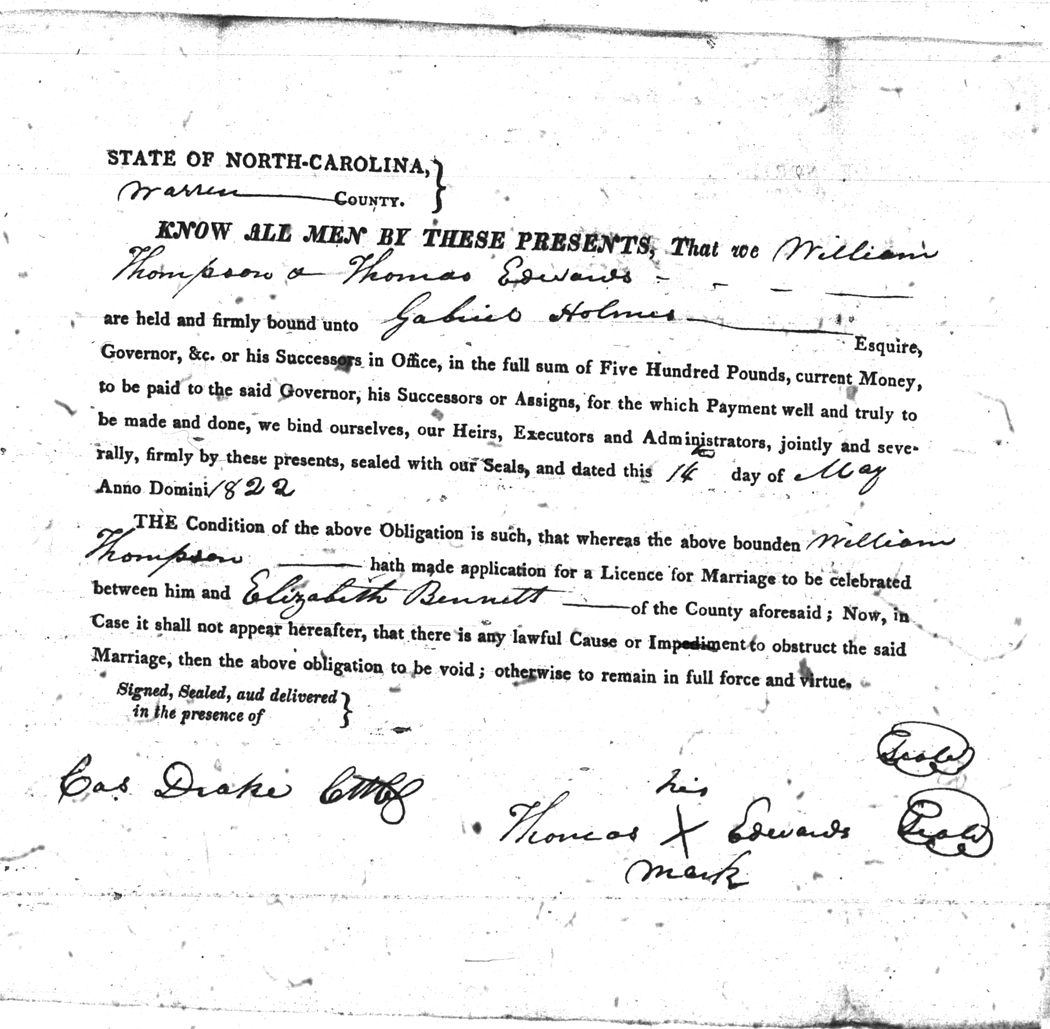 STATE OF NORTH-CAROLINA,
Warren COUNTY.
KNOW ALL MEN BY THESE PRESENTS, That we William
Thompson & Thomas Edwards
are held and firmly bound unto Gabriel Holmes
Esquire,
Governor, &c. or his Successors in Office, in the full sum of Five Hundred Pounds, current Money,
to be paid to the said Governor, his Successors or Assigns, for the which Payment well and truly to
be made and done, we bind ourselves, our Heirs, Executors and Administrators, jointly and seve-
rally, firmly by these presents, sealed with our Seals, and dated this 14th day of May
Anno Domini 1822
THE Condition of the above Obligation is such, that whereas the above bounden William
Thompson hath made application for a Licence for Marriage to be celebrated
between him and Elizabeth Bennett of the County aforesaid; Now, in
Case it shall not appear hereafter, that there is any lawful Cause or Impediment to obstruct the said
Marriage, then the above obligation to be void; otherwise to remain in full force and virtue.
Signed, Sealed, aud delivered
in the presence of
Seal
Cas. Drake
his
Thomas X Edwards Seal
mark